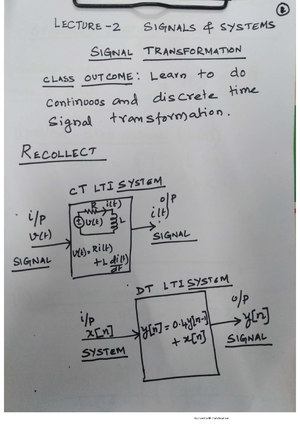 ②
LECTURE-2 SIGNALS & SYSTEMS
SIGNAL TRANSFORMATION
CLASS OUTCOME: Learn to do
continuoos and discrete time
Signal transformation.
RECOLLECT
CT LTI SYSTEM
i/p
v(t)
SIGNAL
R i(t)
v(t) L
v(t) = Ri(t)
+ L di(t)/dt
o/p
i(t)
SIGNAL
DT LTI SYSTEM
i/p
x[n]
SYSTEM
y[n] = 0.4y[n-1]
+ x[n]
o/p
y[n]
SIGNAL